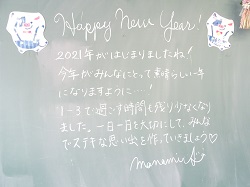 Happy New Year!
2021年がはじまりましたね!
今年がみんなにとって素晴らしい一年
になりますように…!
1-3で過ごす時間も残り少なくなり
ました。一日一日を大切にして、みんな
でステキな思い出を作っていきましょう♡
manami